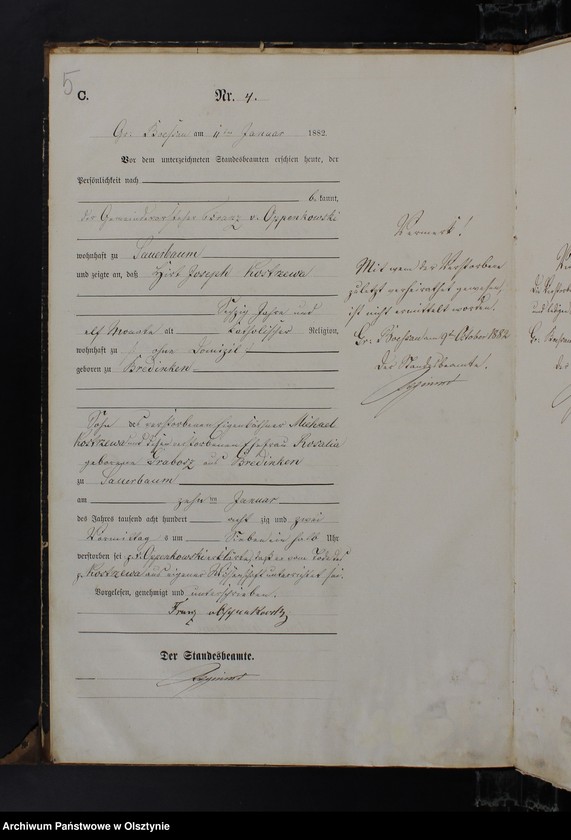 5
C.
Nr. 4.
Gr. Boessau am 11ten Januar 1882.
Vor dem unterzeichneten Standesbeamten erschien heute, der
Persönlichkeit nach
bekannt,
der Gemeindevorsteher Franz v. Oppenkowski
wohnhaft zu Sauerbaum
und zeigte an, daß Hirt Joseph Kostrzewa
Sechzig Jahre und
elf Monate alt katholischer Religion,
wohnhaft zu ohne Domizil
geboren zu Bredinken
Sohn des verstorbenen Eigenkäthners Michael
Kostrzewa und seiner verstorbenen Ehefrau Rosalia
geborenen Grabosz aus Bredinken
zu Sauerbaum
am zehnten Januar
des Jahres tausend acht hundert acht zig und zwei
Vormittags um Sieben ein halb Uhr
verstorben sei, v. Oppenkowski erklärte, daß er vom Tode des
p. Kostrzewa aus eigener Wissenschaft unterrichtet sei.
Vorgelesen, genehmigt und unterschrieben.
Franz
Der Standesbeamte.
Vermerk!
Mit wem der Verstorbene
zuletzt verheirathet gewesen,
ist nicht ermittelt worden.
Gr. Boessau am 9t October 1882
Der Standesbeamte.
Archiwum Państwowe w Olsztynie